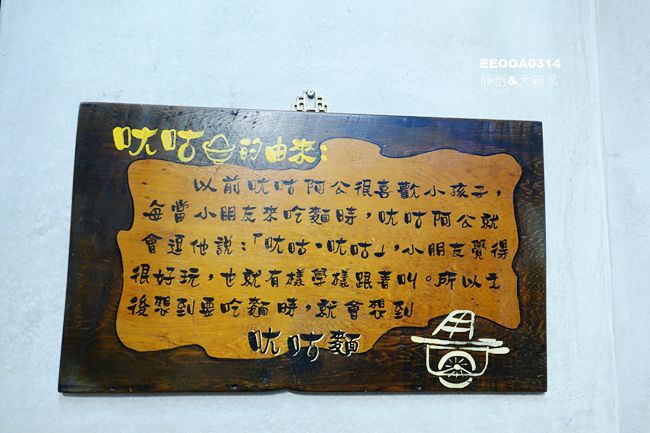 EEOOA0314
靜怡&大顆呆
呔咕的由來：
以前呔咕阿公很喜歡小孩子，
每當小朋友來吃麵時，呔咕阿公就
會逗他說：「呔咕，呔咕」，小朋友覺得
很好玩，也就有樣學樣跟著叫。所以之
後想到要吃麵時，就會想到
呔咕麵